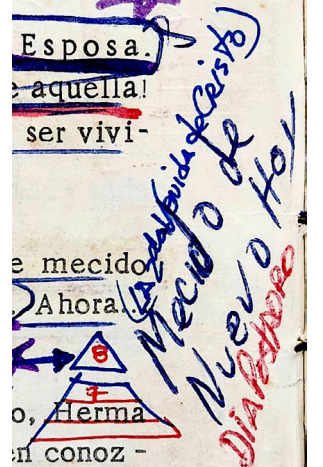 Esposa.
e aquella!
ser vivi-
e mecido
Ahora.
8
7
o, Herma
en conoz -
(La 2da Venida de Cristo)
Mecido de
Nuevo Hoy
Dia Postrero